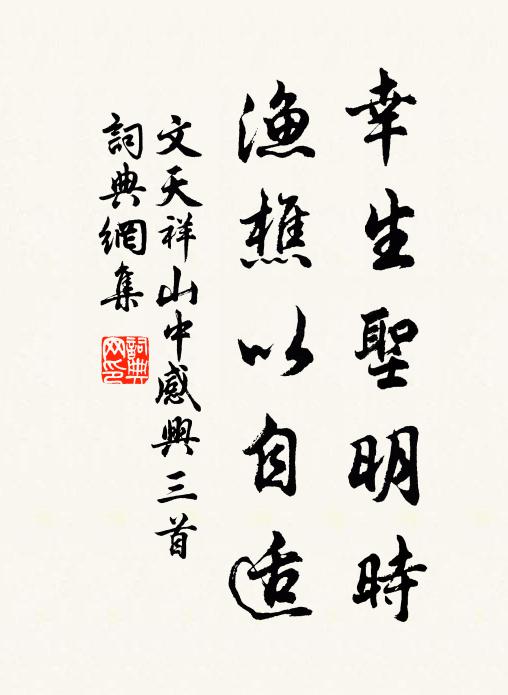 幸生聖明時
漁樵以自適
文天祥山中感興三首
詞典網集
詞典网印